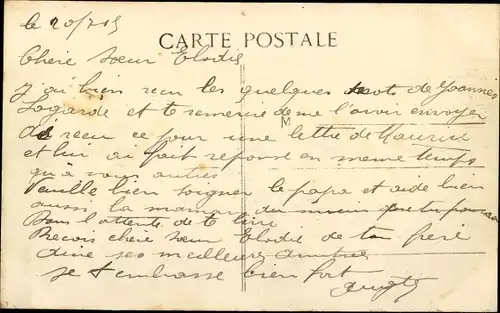 le 20/7 15
CARTE POSTALE
Chère Sœur Elodie
j'ai bien reçu les quelques mots de Joannes
Lagarde et te remercie de me l'avoir envoyer
M
reçu ce jour une lettre de Maurice
et lui ai fait réponse en même temps
qu'a vous autres
Veuille bien soigner le papa et aide bien
aussi la maman du mieux que tu pourras
Dans l'attente de te lire
Reçois chère Sœur Elodie de ton frère
aîné ses meilleures amitiés
je t embrasse bien fort